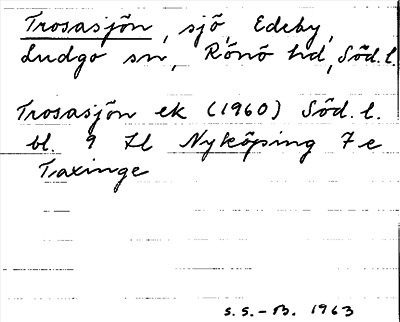 Trosasjön, sjö, Edeby,
Ludgo sn, Rönö hd, Söd.l.
Trosasjön ek (1960) Söd.l.
bl. 9 Il Nyköping 7 e
Taxinge
S.S.-B. 1963